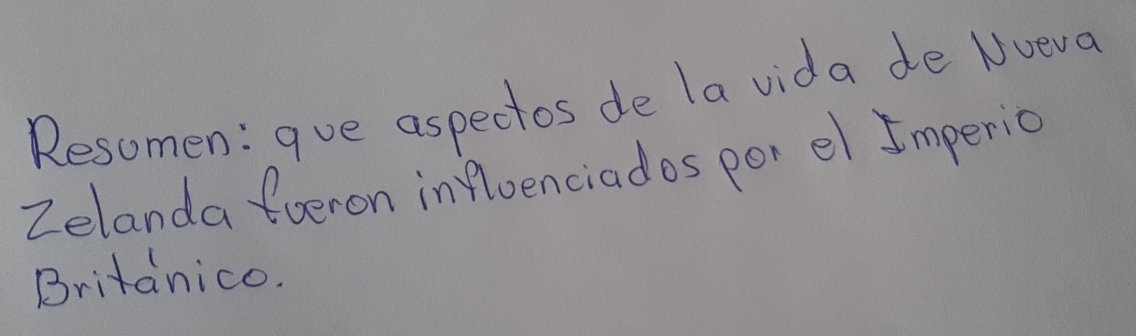 Resumen: que aspectos de la vida de Nueva
Zelanda fueron influenciados por el Imperio
Británico.